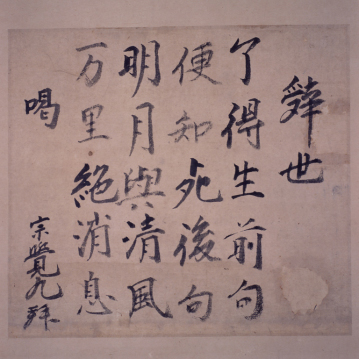 辭世
了得生前句
便知死後句
明月與清風
万里絶消息
喝
宗覺九拜